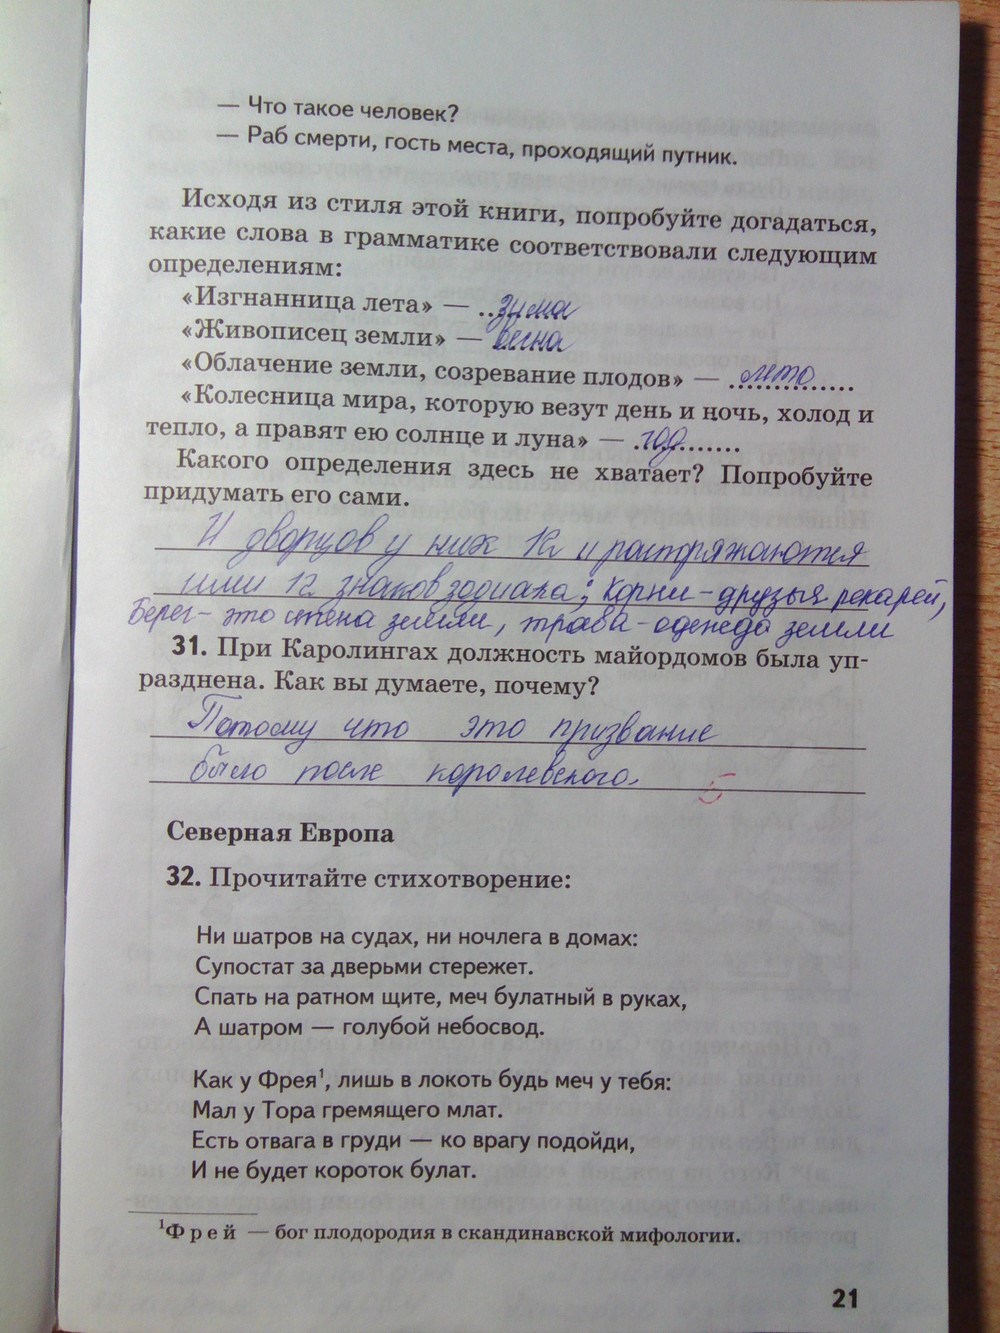 — Что такое человек?
— Раб смерти, гость места, проходящий путник.
Исходя из стиля этой книги, попробуйте догадаться,
какие слова в грамматике соответствовали следующим
определениям:
«Изгнанница лета» — ..зима
«Живописец земли» — весна
«Облачение земли, созревание плодов» — лето
«Колесница мира, которую везут день и ночь, холод и
тепло, а правят ею солнце и луна» — год
Какого определения здесь не хватает? Попробуйте
придумать его сами.
И дворцов у них 12 и распряжаются
ими 12 знаков зодиака; Корни - друзья рекарей,
Берег - это стена земли, трава - одежда земли
31. При Каролингах должность майордомов была уп-
разднена. Как вы думаете, почему?
Потому что это призвание
было после королевского.
5
Северная Европа
32. Прочитайте стихотворение:
Ни шатров на судах, ни ночлега в домах:
Супостат за дверьми стережет.
Спать на ратном щите, меч булатный в руках,
А шатром — голубой небосвод.
Как у Фрея¹, лишь в локоть будь меч у тебя:
Мал у Тора гремящего млат.
Есть отвага в груди — ко врагу подойди,
И не будет короток булат.
¹Фрей — бог плодородия в скандинавской мифологии.
21